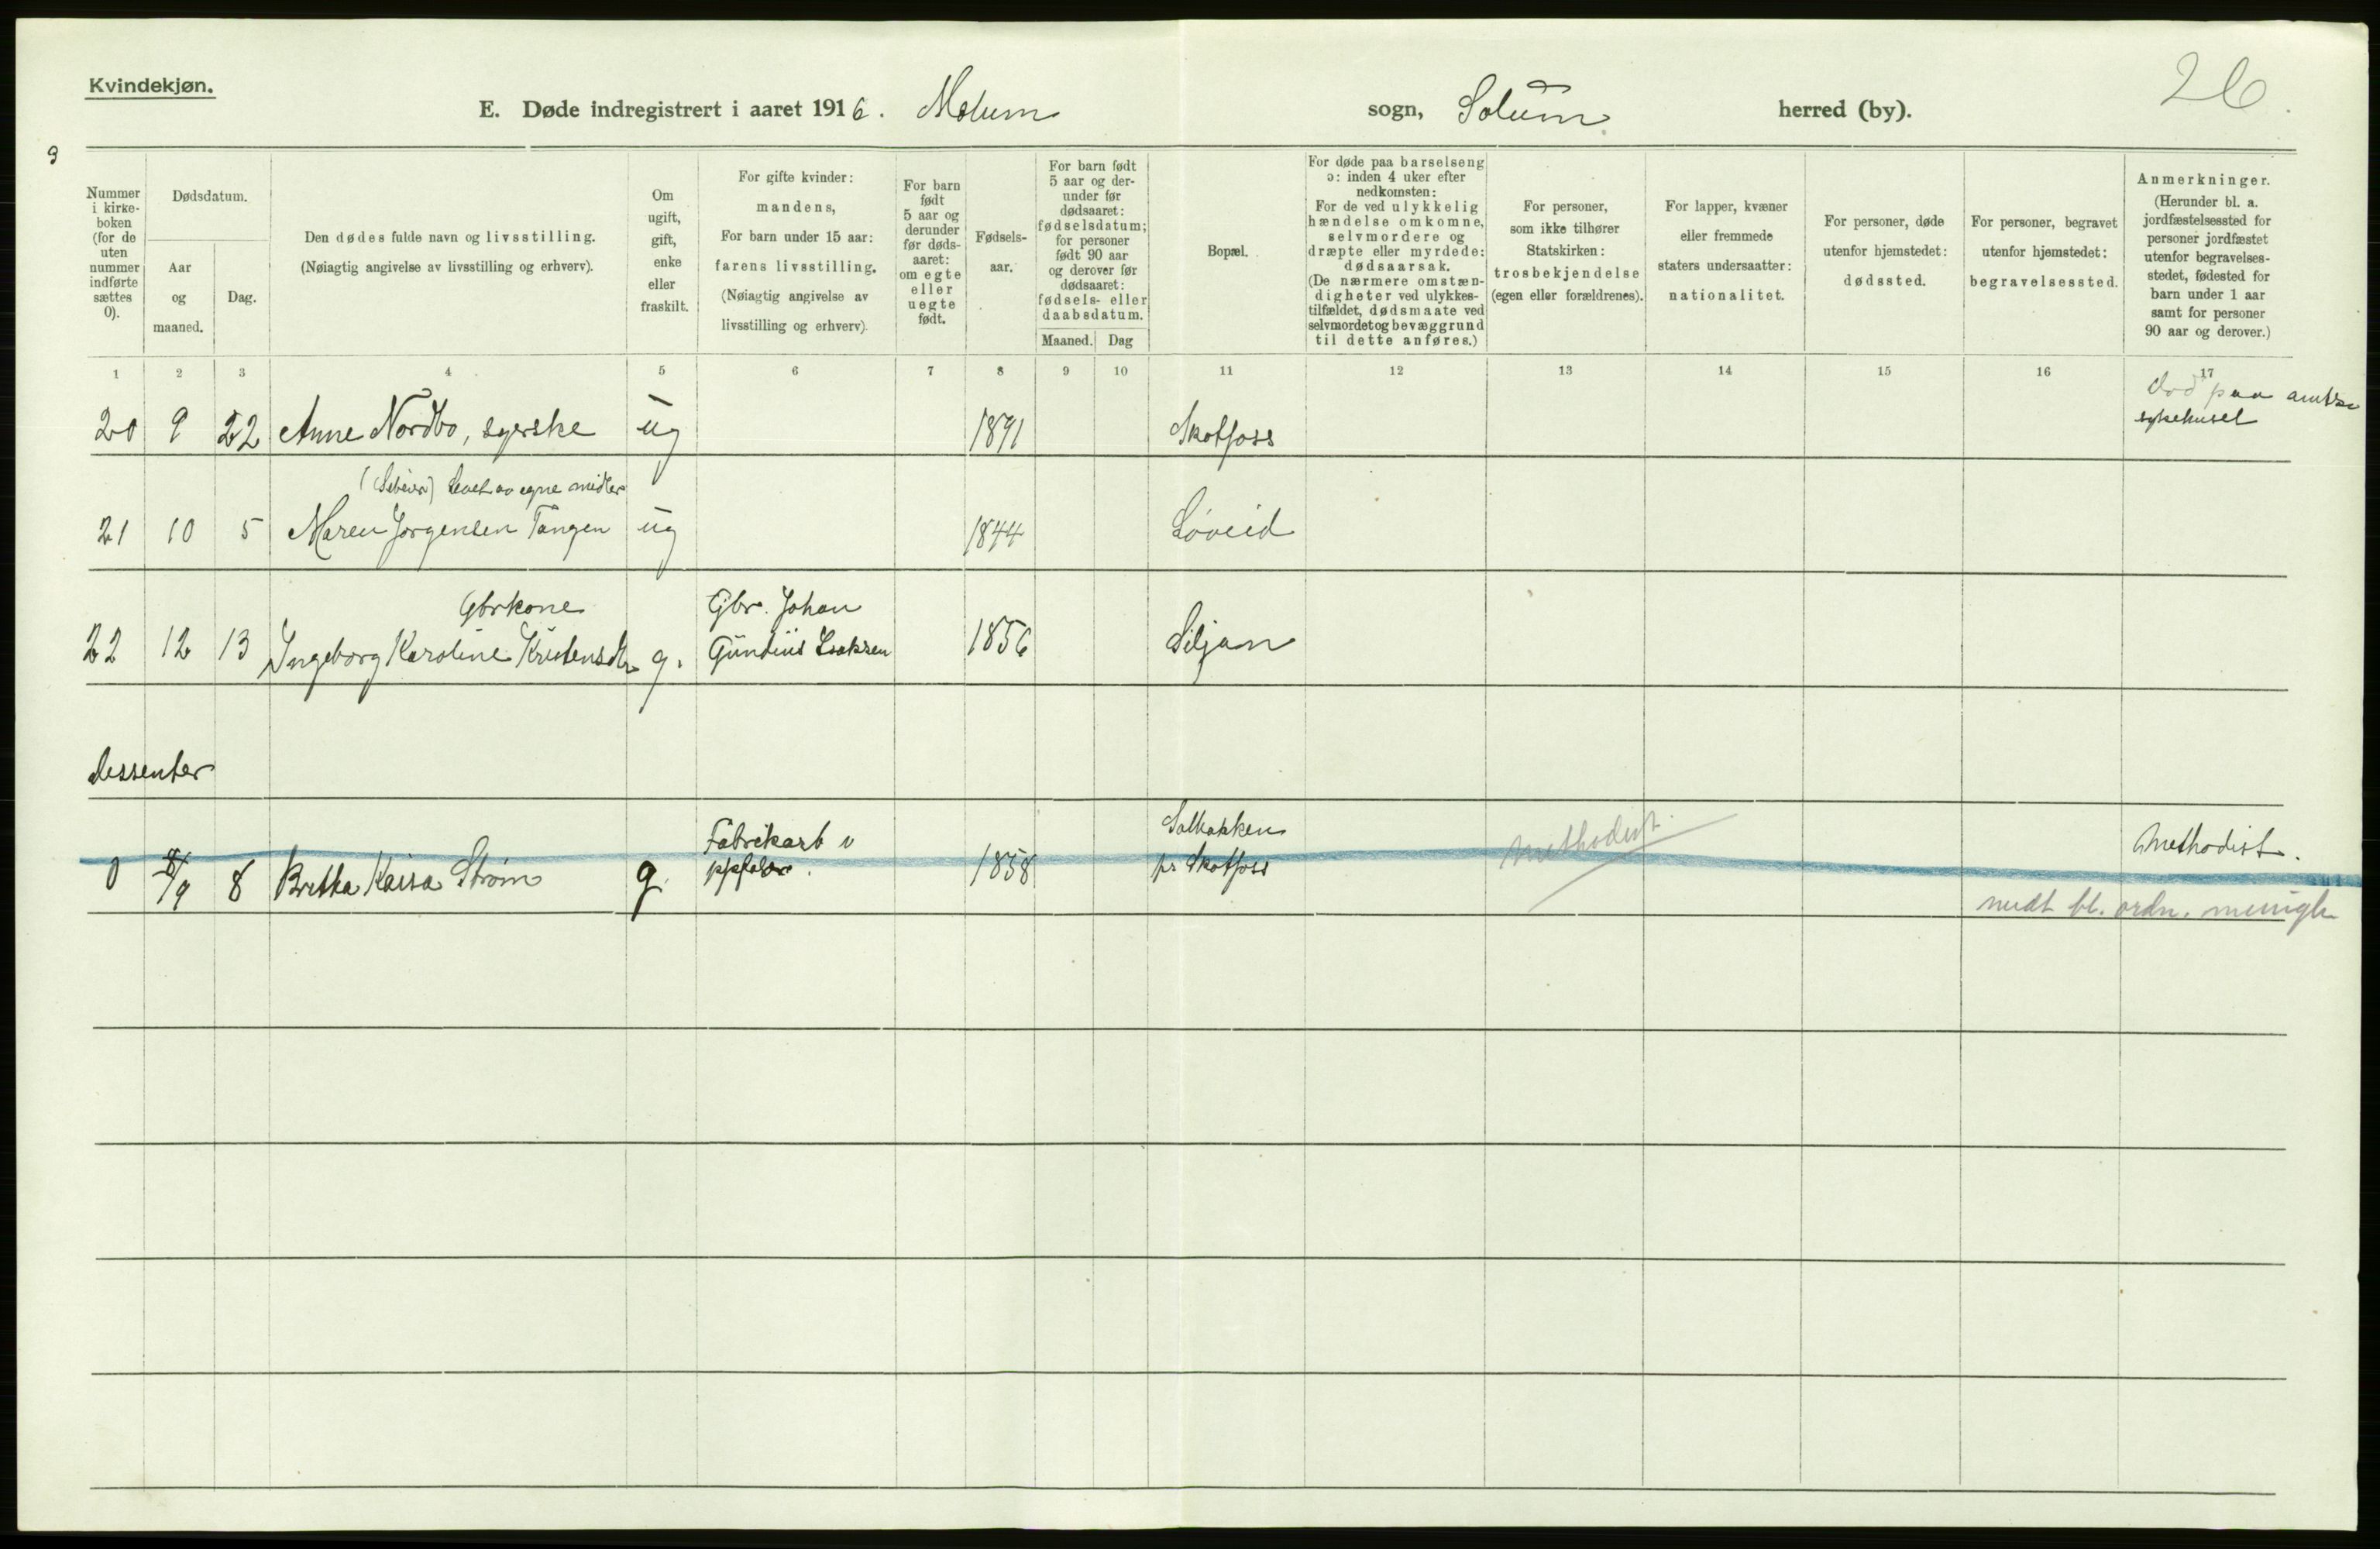 Kvindekjøn.
26
E. Døde indregistrert i aaret 1916. Melum sogn, Solum herred (by).
Nummer i kirke-boken (for de uten nummer indførte sættes 0).
Dødsdatum.
Aar og maaned.
Dag.
Den dødes fulde navn og livsstilling.
(Nøiagtig angivelse av livsstilling og erhverv).
Om ugift, gift, enke eller fraskilt.
For gifte kvinder: mandens,
For barn under 15 aar: farens livsstilling.
(Nøiagtig angivelse av livsstilling og erhverv).
For barn født 5 aar og derunder før døds-aaret: om egte eller uegte født.
Fødsels-aar.
For barn født 5 aar og der-under før dødsaaret: fødselsdatum; for personer født 90 aar og derover før dødsaaret: fødsels- eller daabsdatum.
Maaned. Dag
Bopæl.
For døde paa barselseng ɔ: inden 4 uker efter nedkomsten:
For de ved ulykkelig hændelse omkomne, selvmordere og dræpte eller myrdede: dødsaarsak.
(De nærmere omstæn-digheter ved ulykkes-tilfældet, dødsmaate ved selvmordet og bevæggrund til dette anføres.)
For personer, som ikke tilhører Statskirken: trosbekjendelse (egen eller forældrenes).
For lapper, kvæner eller fremmede staters undersaatter: nationalitet.
For personer, døde utenfor hjemstedet: dødssted.
For personer, begravet utenfor hjemstedet: begravelsessted.
Anmerkninger.
(Herunder bl. a. jordfæstelsessted for personer jordfæstet utenfor begravelses-stedet, fødested for barn under 1 aar samt for personer 90 aar og derover.)
1 2 3 4 5 6 7 8 9 10 11 12 13 14 15 16 17
20 9 22 Anne Nordbo, syerske ug 1891 Skotfoss
død paa amts sykehuset
levet av egne midler
21 10 5 Maren Jørgensen Tangen ug 1844 Løveid
Gbrkone
22 12 13 Ingeborg Karoline Kristensdtr g. Gbr. Johan Gundius Isaksen 1856 Siljan
dessenter
0 9 8 Britha Kaisa Strøm g. Fabrikarb v 1858
pr Skotfoss
Methodist
Methodist.
medt bl. ordn. menigh